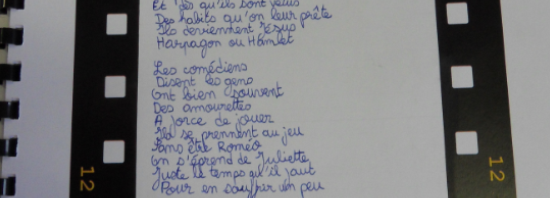 Et dès qu'ils sont vêtus
Des habits qu'on leur prête
Ils deviennent Jésus
Harpagon ou Hamlet
Les comédiens
Disent les gens
Ont bien souvent
Des amourettes
A force de jouer
Ils se prennent au jeu
Sans être Roméo
On s'éprend de Juliette
Juste le temps qu'il faut
Pour en souffrir un peu
12
12